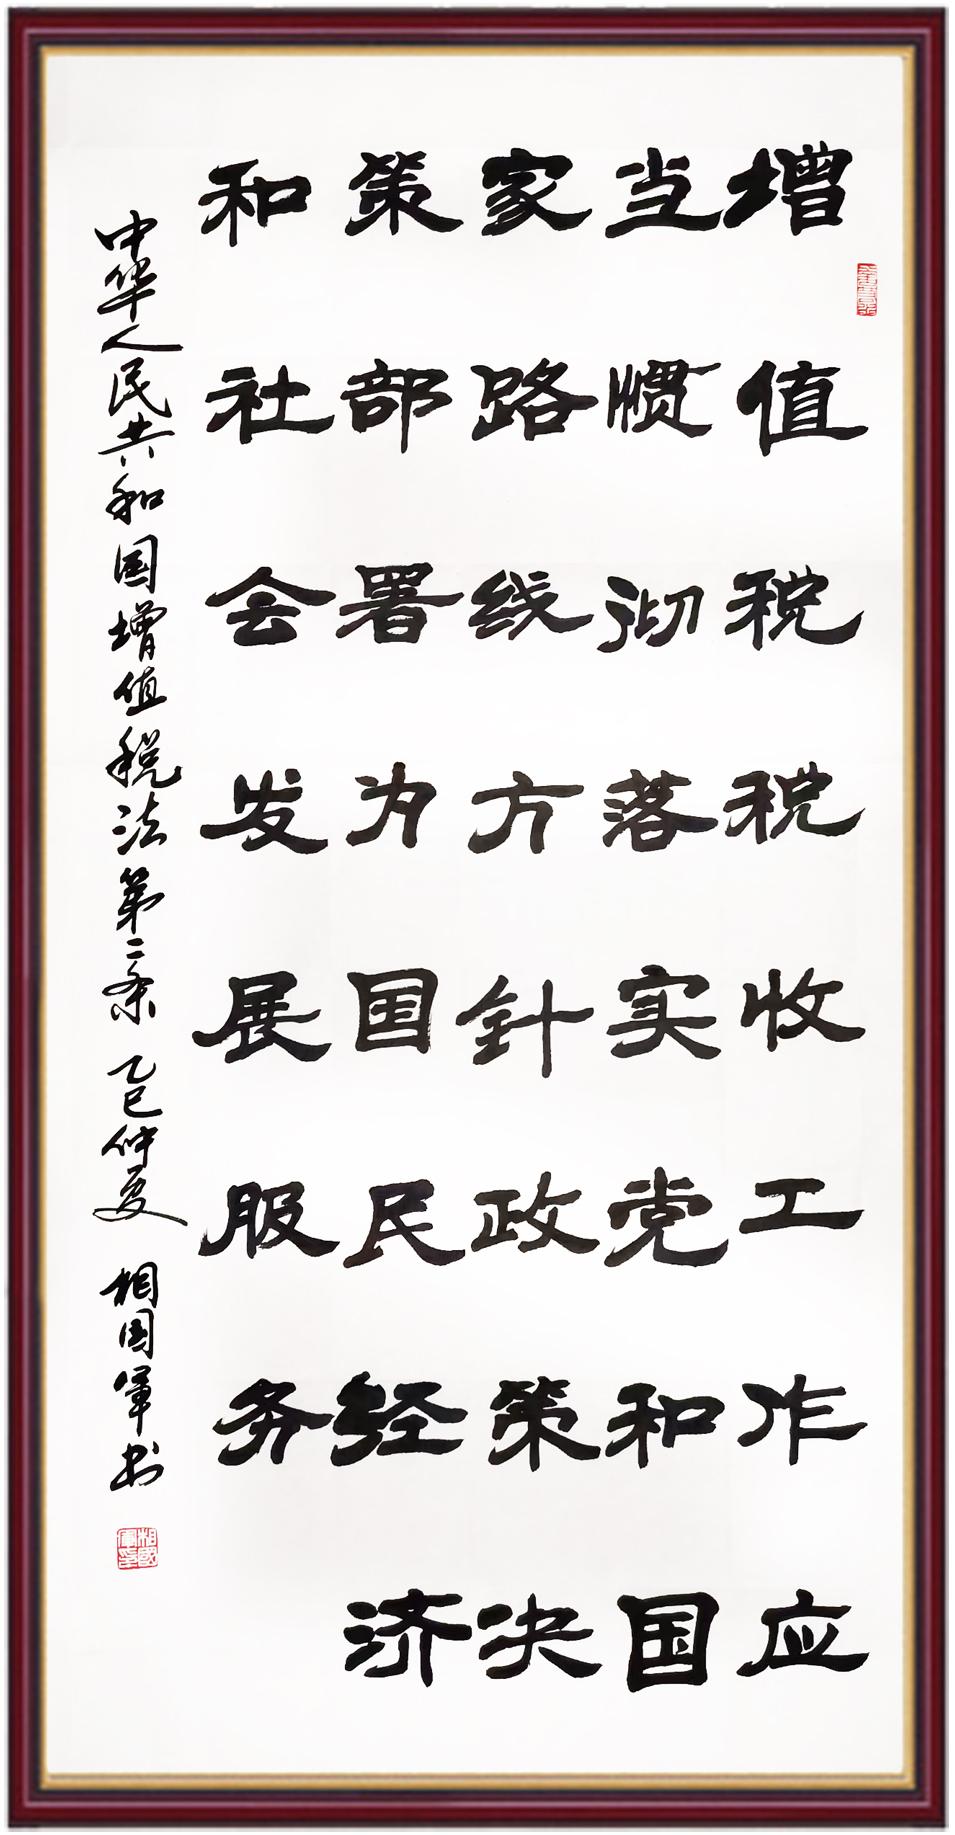 增值税税收工作应
当惯彻落实党和国
家路线方针政策决
策部署为国民经济
和社会发展服务
中华人民共和国增值税法第二条 乙巳仲夏 相国軍书
相國軍印